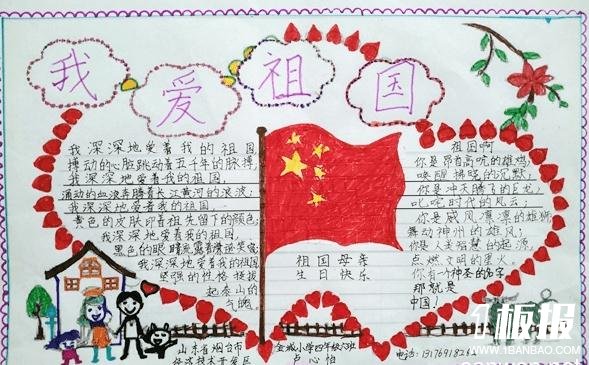 我爱祖国
我深深地爱着我的祖国,
搏动的心脏跳动着五千年的脉搏,
我深深地爱着我的祖国,
涌动的血液奔腾着长江黄河的浪波;
我深深地爱着我的祖国
黄色的皮肤印着祖先留下的颜色;
我深深地爱着我的祖国,
黑色的眼睛流露着
我深深地爱着我的祖国
坚强的性格挺拔
起泰山的
气魄。
祖国母亲
生日快乐
祖国啊
你是昂首高吭的雄鸡,
唤醒拂晓的沉默,
你是冲天腾飞的巨龙,
叱咤时代的风云,
你是威风凛凛的雄狮
舞动神州的雄风;
你是人类智慧的起源,
点燃文明的星火。
你有个神圣的名字
那就是
中国!
山东省烟台市
经济技术开发区
金城小学四年级六班
卢心怡
电话:
板报
WWW.1BANBAO.COM